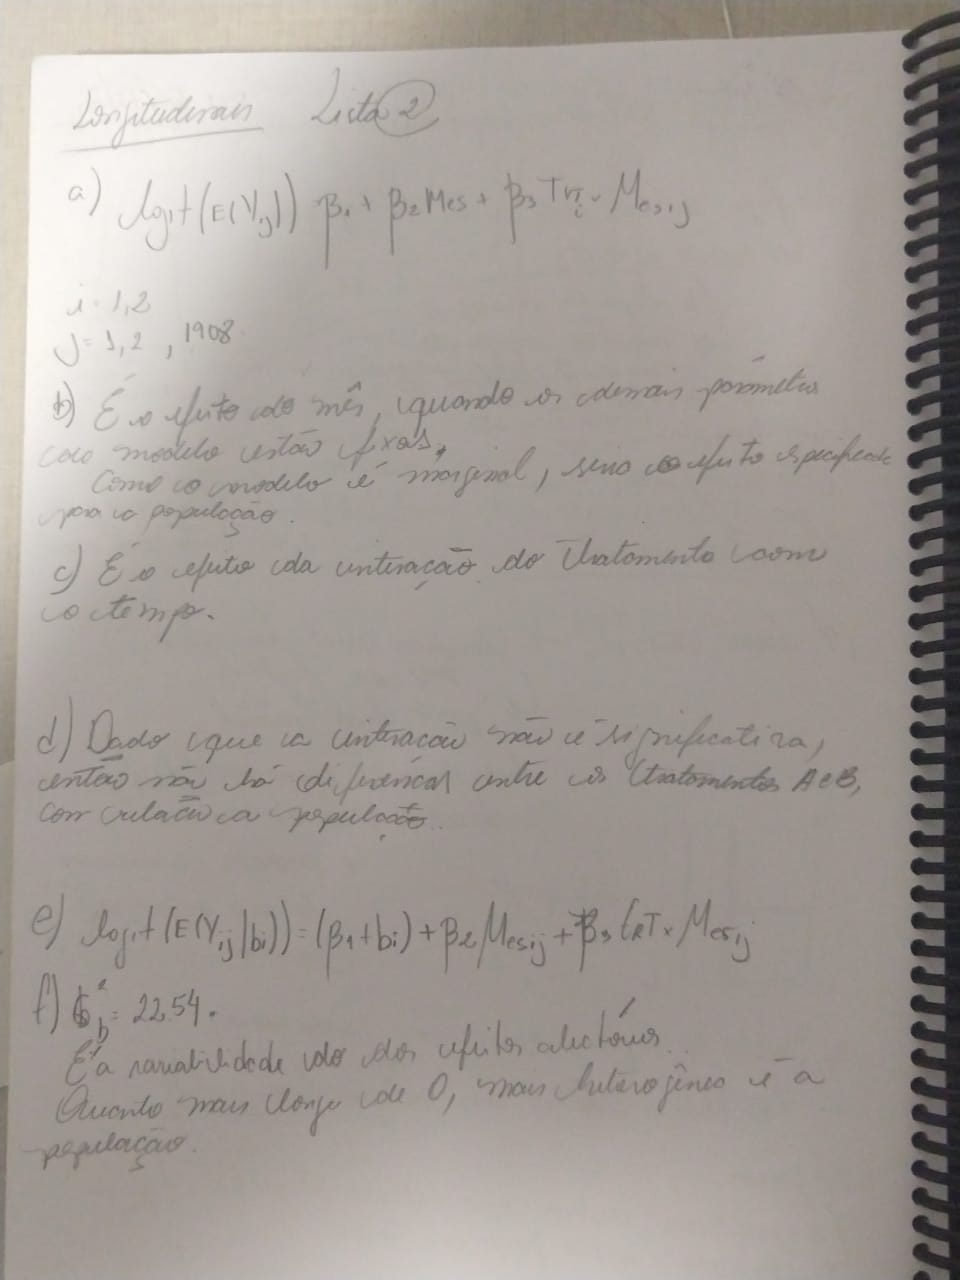 Longitudinais Lista 2
a) logit(E(Yij)) β1 + β2 Mes + β3 Trti × Mesij
i = 1,2
J = 1,2, 1908.
b) É o efeito do mês, quando os demais parâmetros
do modelo estão fixos.
Como o modelo é marginal, seria o efeito especificado
para a população.
c) É o efeito da interação do tratamento com
o tempo.
d) Dado que a interação não é significativa,
então não há diferenças entre os tratamentos A e B,
com relação a população.
e) logit(E(Yij|bi)) = (β1 + bi) + β2 Mesij + β3 TRT × Mesij
f) σ²b = 22.54.
É a variabilidade dos efeitos aleatórios.
Quanto mais longe de 0, mais heterogêneo é a
população.